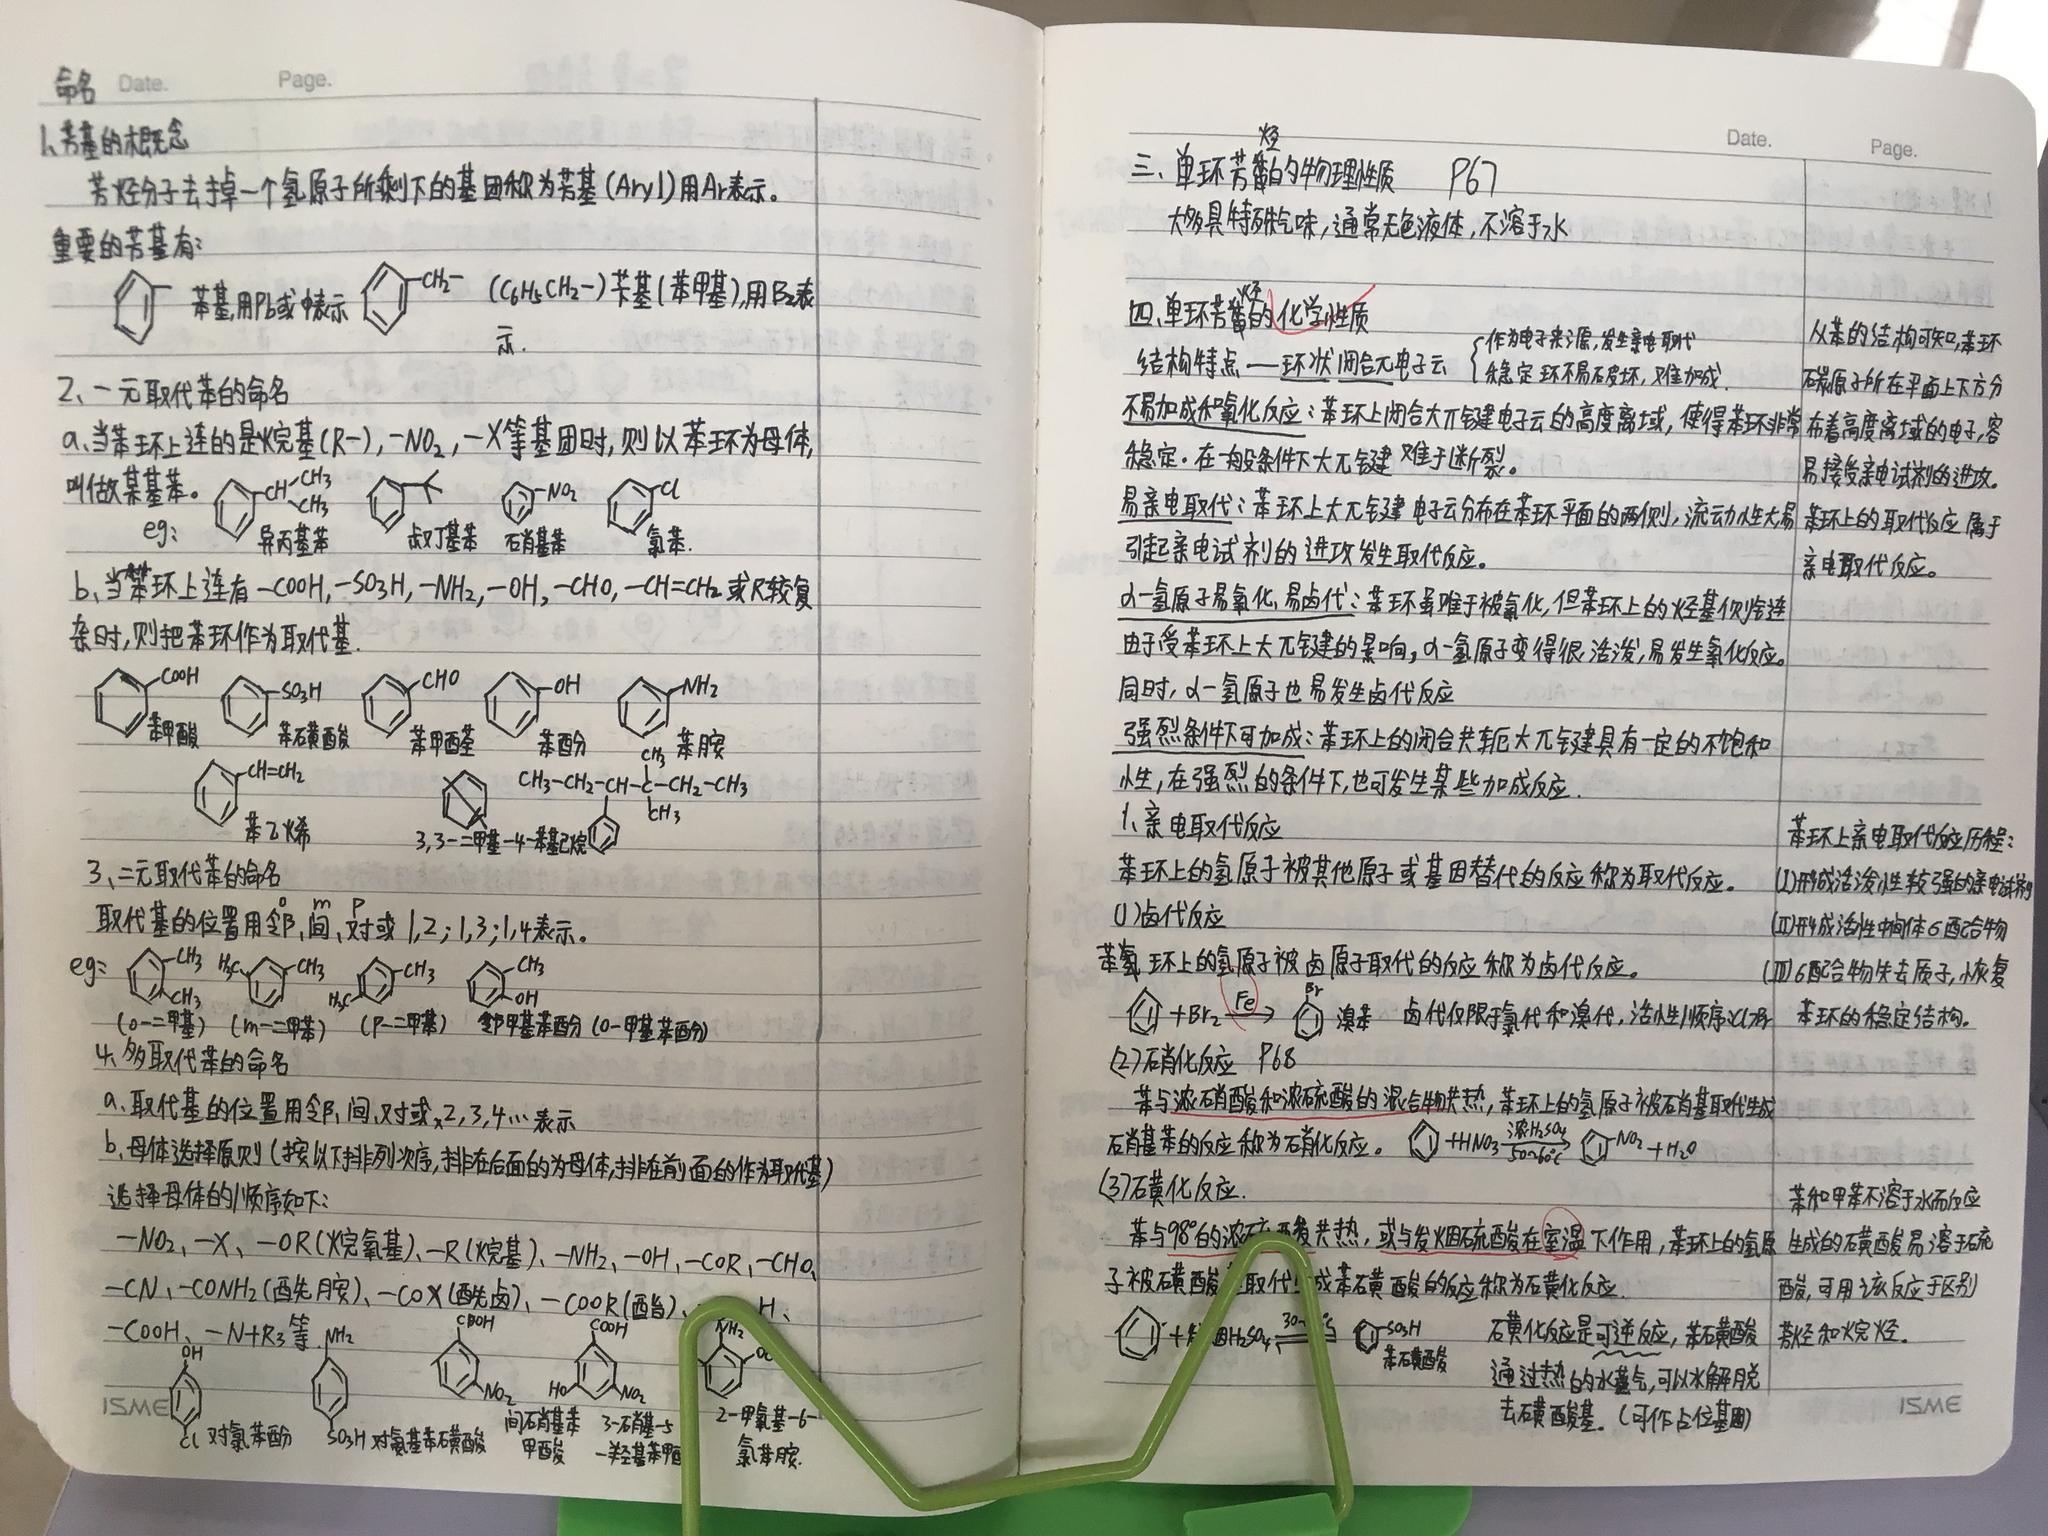 命名 Date. Page.
1、芳基的概念
芳烃分子去掉一个氢原子所剩下的基团称为芳基(Aryl)用Ar表示。
重要的芳基有:
苯基,用Pb或φ表示 CH2- (C6H5CH2-)苄基(苯甲基),用Bz表
示.
2、一元取代苯的命名
a.当苯环上连的是烷基(R-),-NO2,-X等基团时,则以苯环为母体,
叫做某基苯。 CH CH3 CH3 NO2 Cl
eg: 异丙基苯 叔丁基苯 硝基苯 氯苯.
b、当苯环上连有-COOH,-SO3H,-NH2,-OH,-CHO,-CH=CH2或R较复
杂时,则把苯环作为取代基.
COOH SO3H CHO OH NH2
苯甲酸 苯磺酸 苯甲醛 苯酚 苯胺
CH3
CH=CH2 CH3-CH2-CH-C-CH2-CH3
CH3
苯乙烯 3,3-二甲基-4-苯基己烷
3、二元取代苯的命名
o m p
取代基的位置用邻、间、对或1,2;1,3;1,4表示。
eg: CH3 CH3 H3C CH3 CH3 H3C CH3 OH
(o-二甲基) (m-二甲苯) (p-二甲苯) 邻甲基苯酚(o-甲基苯酚)
4、多取代苯的命名
a、取代基的位置用邻、间、对或2,3,4…表示
b、母体选择原则(按以下排列次序,排在后面的为母体,排在前面的作为取代基)
选择母体的顺序如下:
-NO2、-X、-OR(烷氧基)、-R(烷基)、-NH2、-OH、-COR、-CHO、
-CN、-CONH2(酰胺)、-COX(酰卤)、-COOR(酯)、 H、
-COOH、-N+R3等
OH NH2 COOH COOH NH2
NO2 HO NO2
Cl 对氯苯酚 SO3H 对氨基苯磺酸 间硝基苯甲酸 3-硝基-5-羟基苯甲 2-甲氧基-6-氯苯胺.
ISME
Date. Page.
烃
三、单环芳的物理性质 P67
大多具特殊气味,通常无色液体,不溶于水
烃
四、单环芳的化学性质
作为电子来源,发生亲电取代
结构特点——环状闭合π电子云
稳定 环不易破坏,难加成.
不易加成和氧化反应:苯环上闭合大π键电子云的高度离域,使得苯环非常
稳定.在一般条件下大π键难于断裂。
易亲电取代:苯环上大π键电子云分布在苯环平面的两侧,流动性大易
引起亲电试剂的进攻发生取代反应。
α-氢原子易氧化、易卤代:苯环虽难于被氧化,但苯环上的烃基侧链
由于受苯环上大π键的影响,α-氢原子变得很活泼,易发生氧化反应。
同时,α-氢原子也易发生卤代反应
强烈条件下可加成:苯环上的闭合共轭大π键具有一定的不饱和
性,在强烈的条件下,也可发生某些加成反应.
1、亲电取代反应
苯环上的氢原子被其他原子或基团替代的反应称为取代反应。
(1)卤代反应
苯环上的氢原子被卤原子取代的反应称为卤代反应。
+Br2 Fe Br 溴苯 卤代仅限于氯代和溴代,活性顺序:Cl>Br
(2)硝化反应 P68
苯与浓硝酸和浓硫酸的混合物共热,苯环上的氢原子被硝基取代生成
硝基苯的反应称为硝化反应。 +HNO3 浓H2SO4 50~60℃ NO2 +H2O
(3)磺化反应.
苯与98°的浓硫酸共热,或与发烟硫酸在室温下作用,苯环上的氢原
子被磺酸 取代 成苯磺酸的反应称为磺化反应.
+ 烟H2SO4 SO3H 苯磺酸
磺化反应是可逆反应,苯磺酸
通过热的水蒸气,可以水解脱
去磺酸基.(可作占位基团)
从苯的结构可知,苯环
碳原子所在平面上下方分
布着高度离域的电子,容
易接受亲电试剂的进攻。
苯环上的取代反应属于
亲电取代反应。
苯环上亲电取代反应历程:
(I)形成活泼性较强的亲电试剂
(II)形成活性中间体σ配合物
(III)σ配合物失去质子,恢复
苯环的稳定结构。
苯和甲苯不溶于水而反应
生成的磺酸易溶于硫
酸,可用该反应于区别
芳烃和烷烃。
ISME